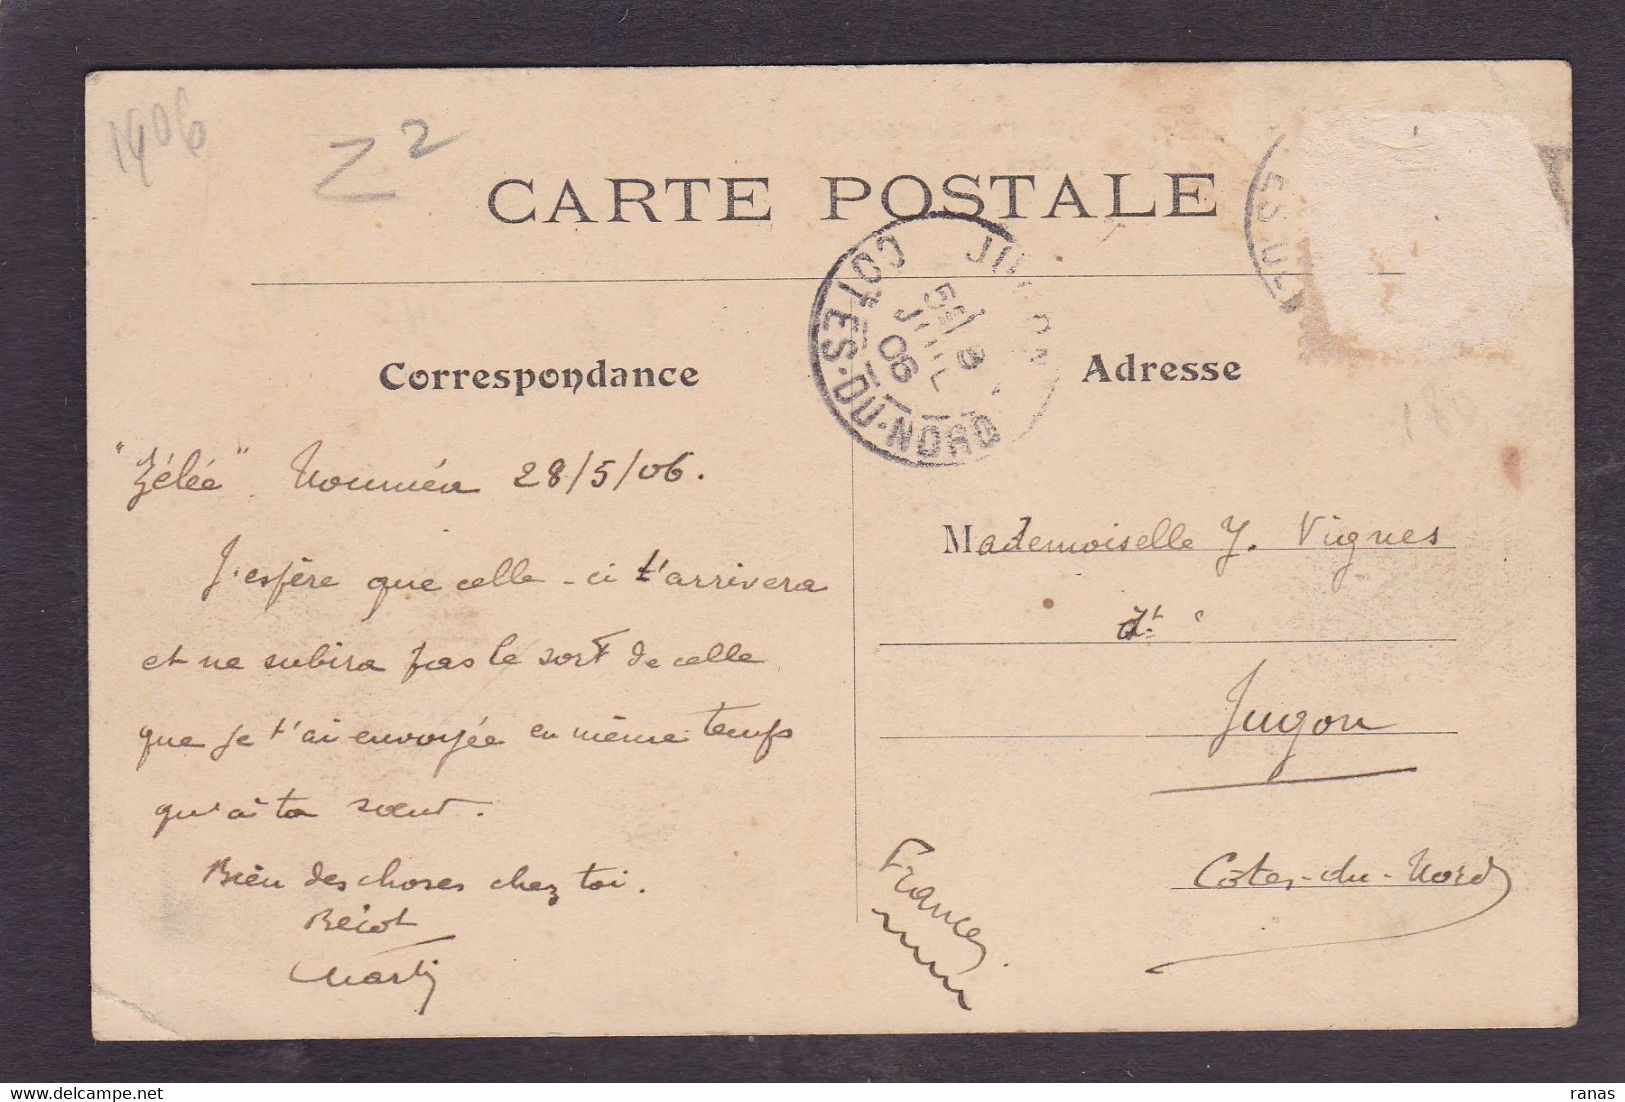 1906
Z 2
CARTE POSTALE
COTES-DU-NORD
JUIL
06
Correspondance
Adresse
"Zélée" Nouméa 28/5/06.
J'espère que celle-ci t'arrivera
et ne subira pas le sort de celle
que je t'ai envoyée en même temps
qu'à ta sœur.
Bien des choses chez toi.
Martij
Mademoiselle Y. Vignes
Jugon
Côtes-du-Nord
France
ranas